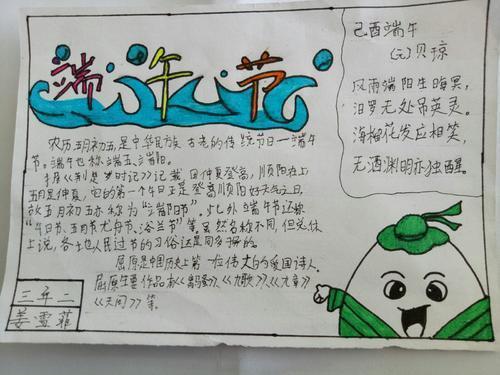 端午节
农历五月初五,是中华民族古老的传统节日——端午
节。端午也称端五、端阳。
据《荆楚岁时记》记载,因仲夏登高,顺阳在上
五月是仲夏,它的第一个午日正是登高顺阳好天气之日,
故五月初五亦称为“端阳节”。此外端午节还称
“午日节、五月节、龙舟节、浴兰节”等。虽然名称不同,但总体
上说,各地人民过节的习俗还是同多于异的。
屈原是中国历史上第一位伟大的爱国诗人。
屈原主要作品有《离骚》《九歌》《九章》
《天问》等。
三年二
姜雪菲
己酉端午
(元)贝琼
风雨端阳生晦冥,
汨罗无处吊英灵。
海榴花发应相笑,
无酒渊明亦独醒。